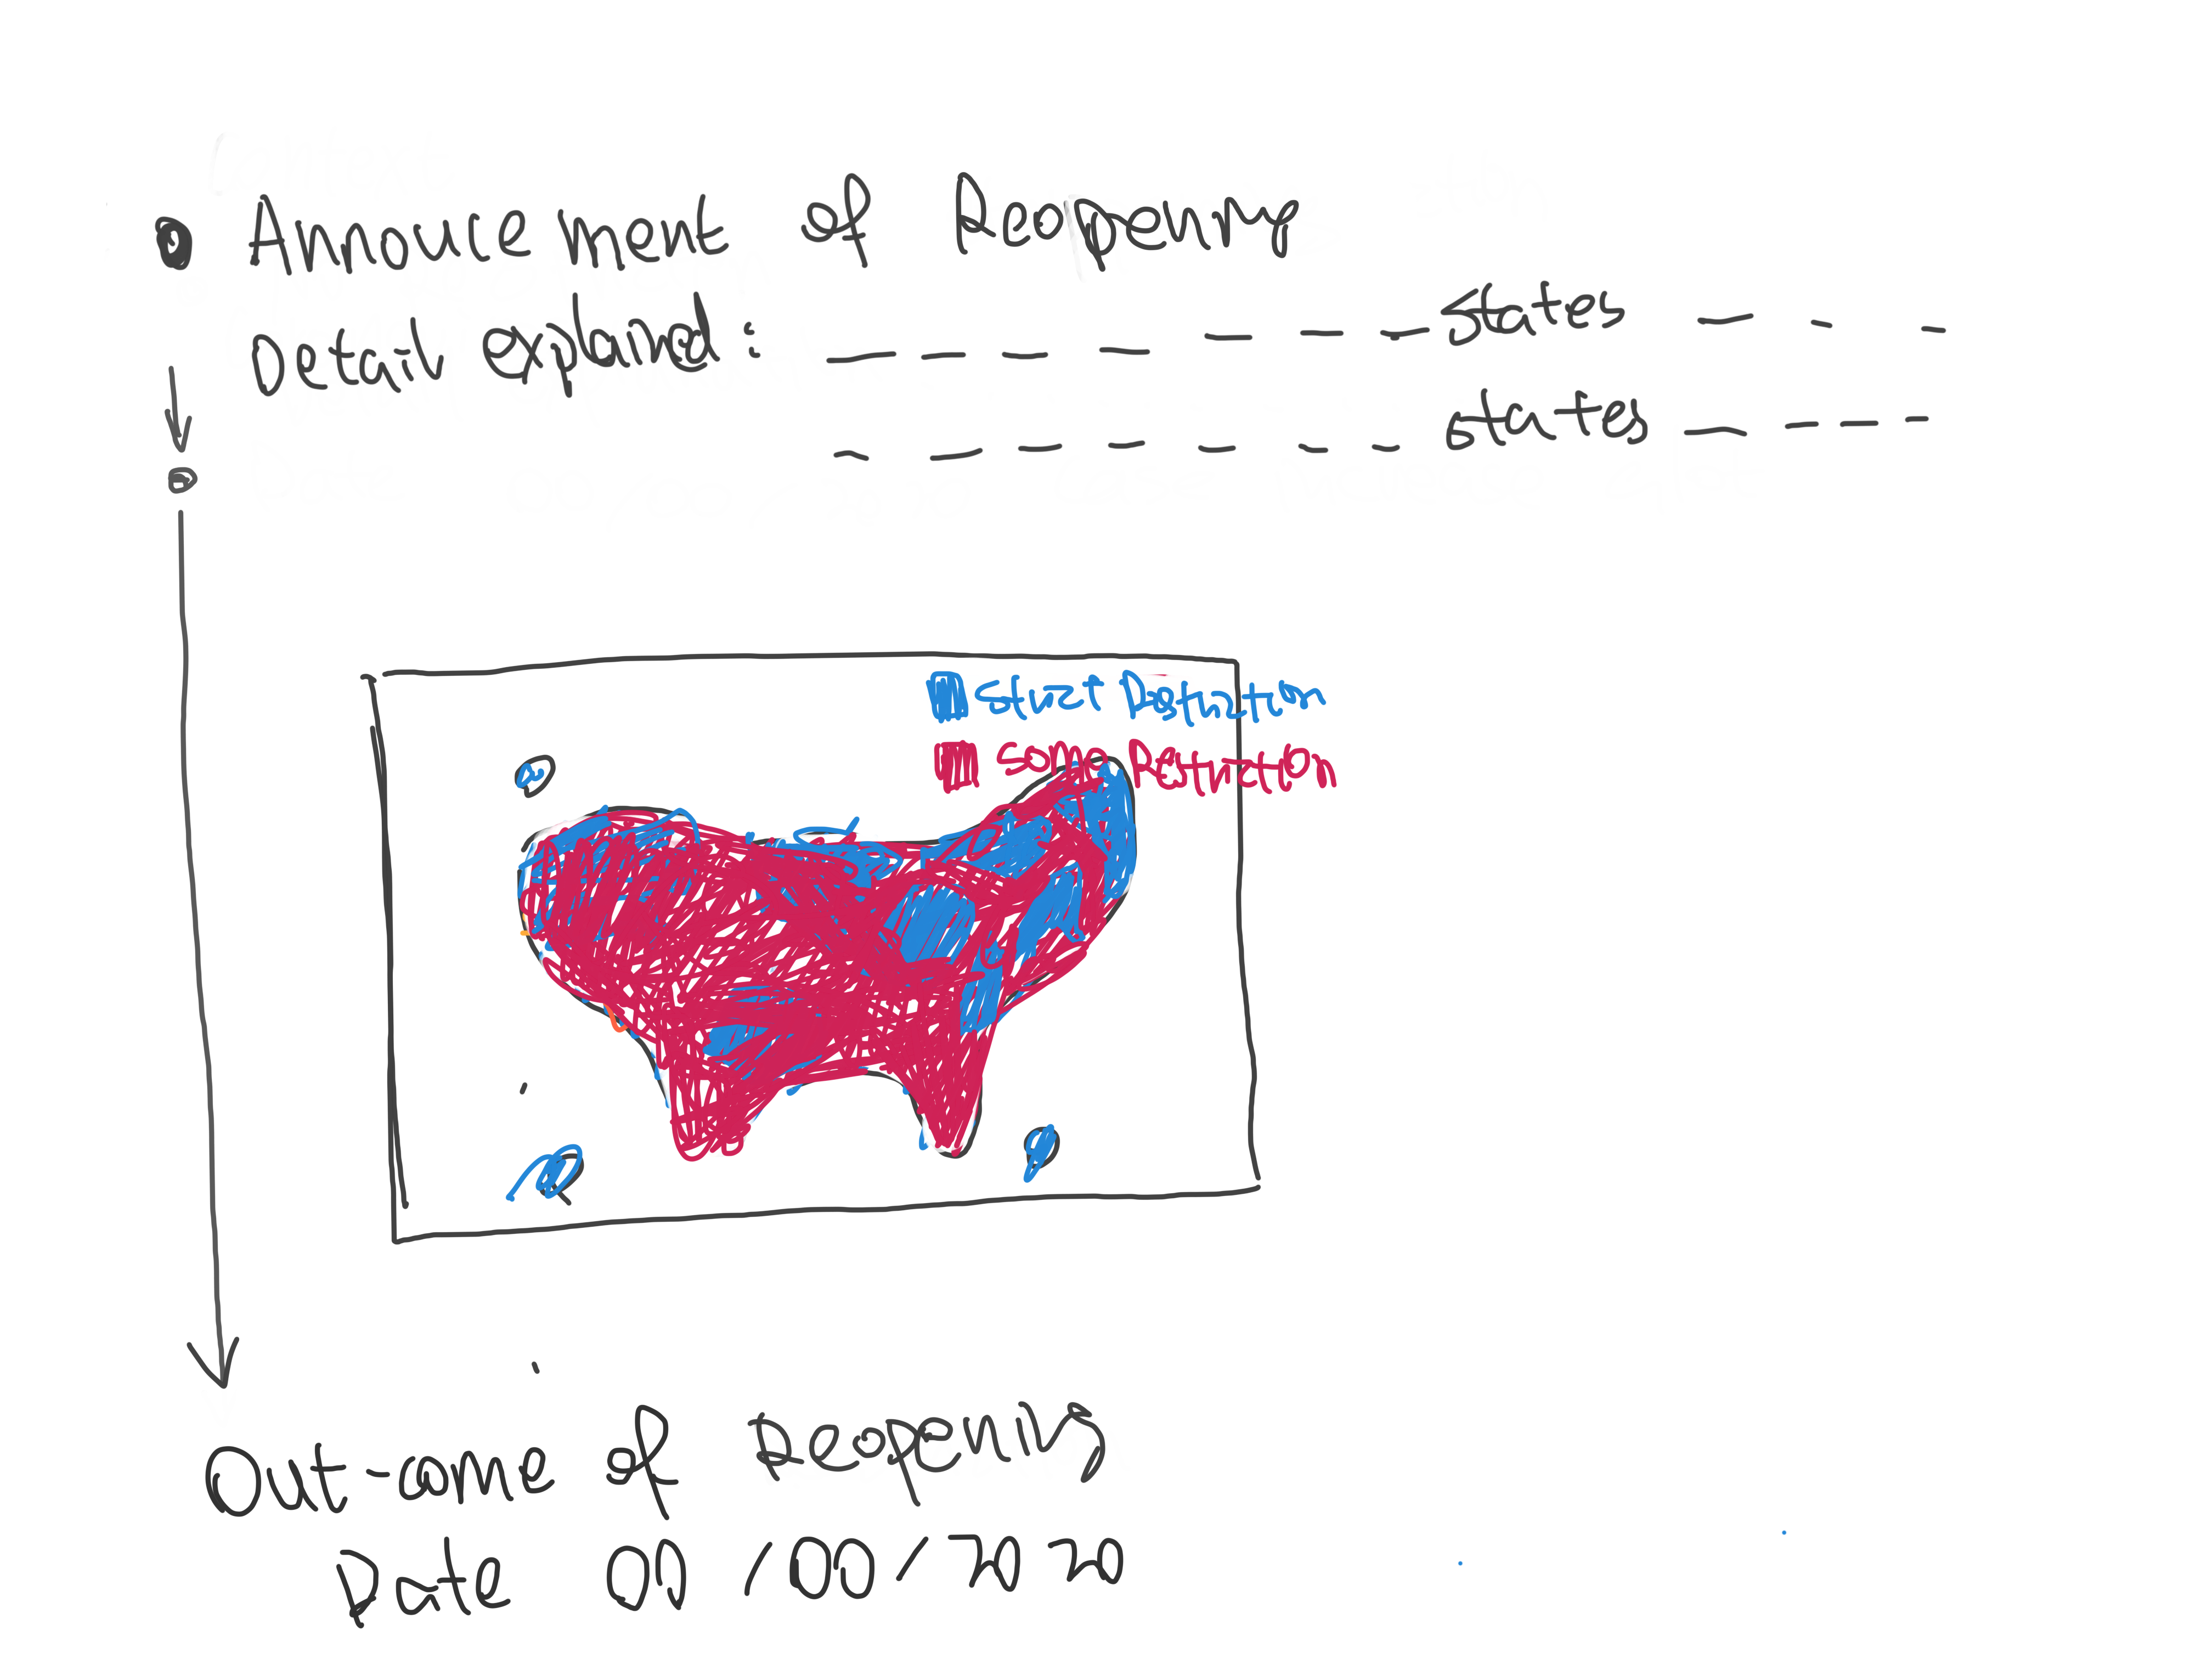 Annoucement of Reopening
Detail explained: — — — — — — — states — - -
- — — - - - - states — - - -
strict Restriction
some Restriction
Out-come of Reopening
Date 00/00/2020